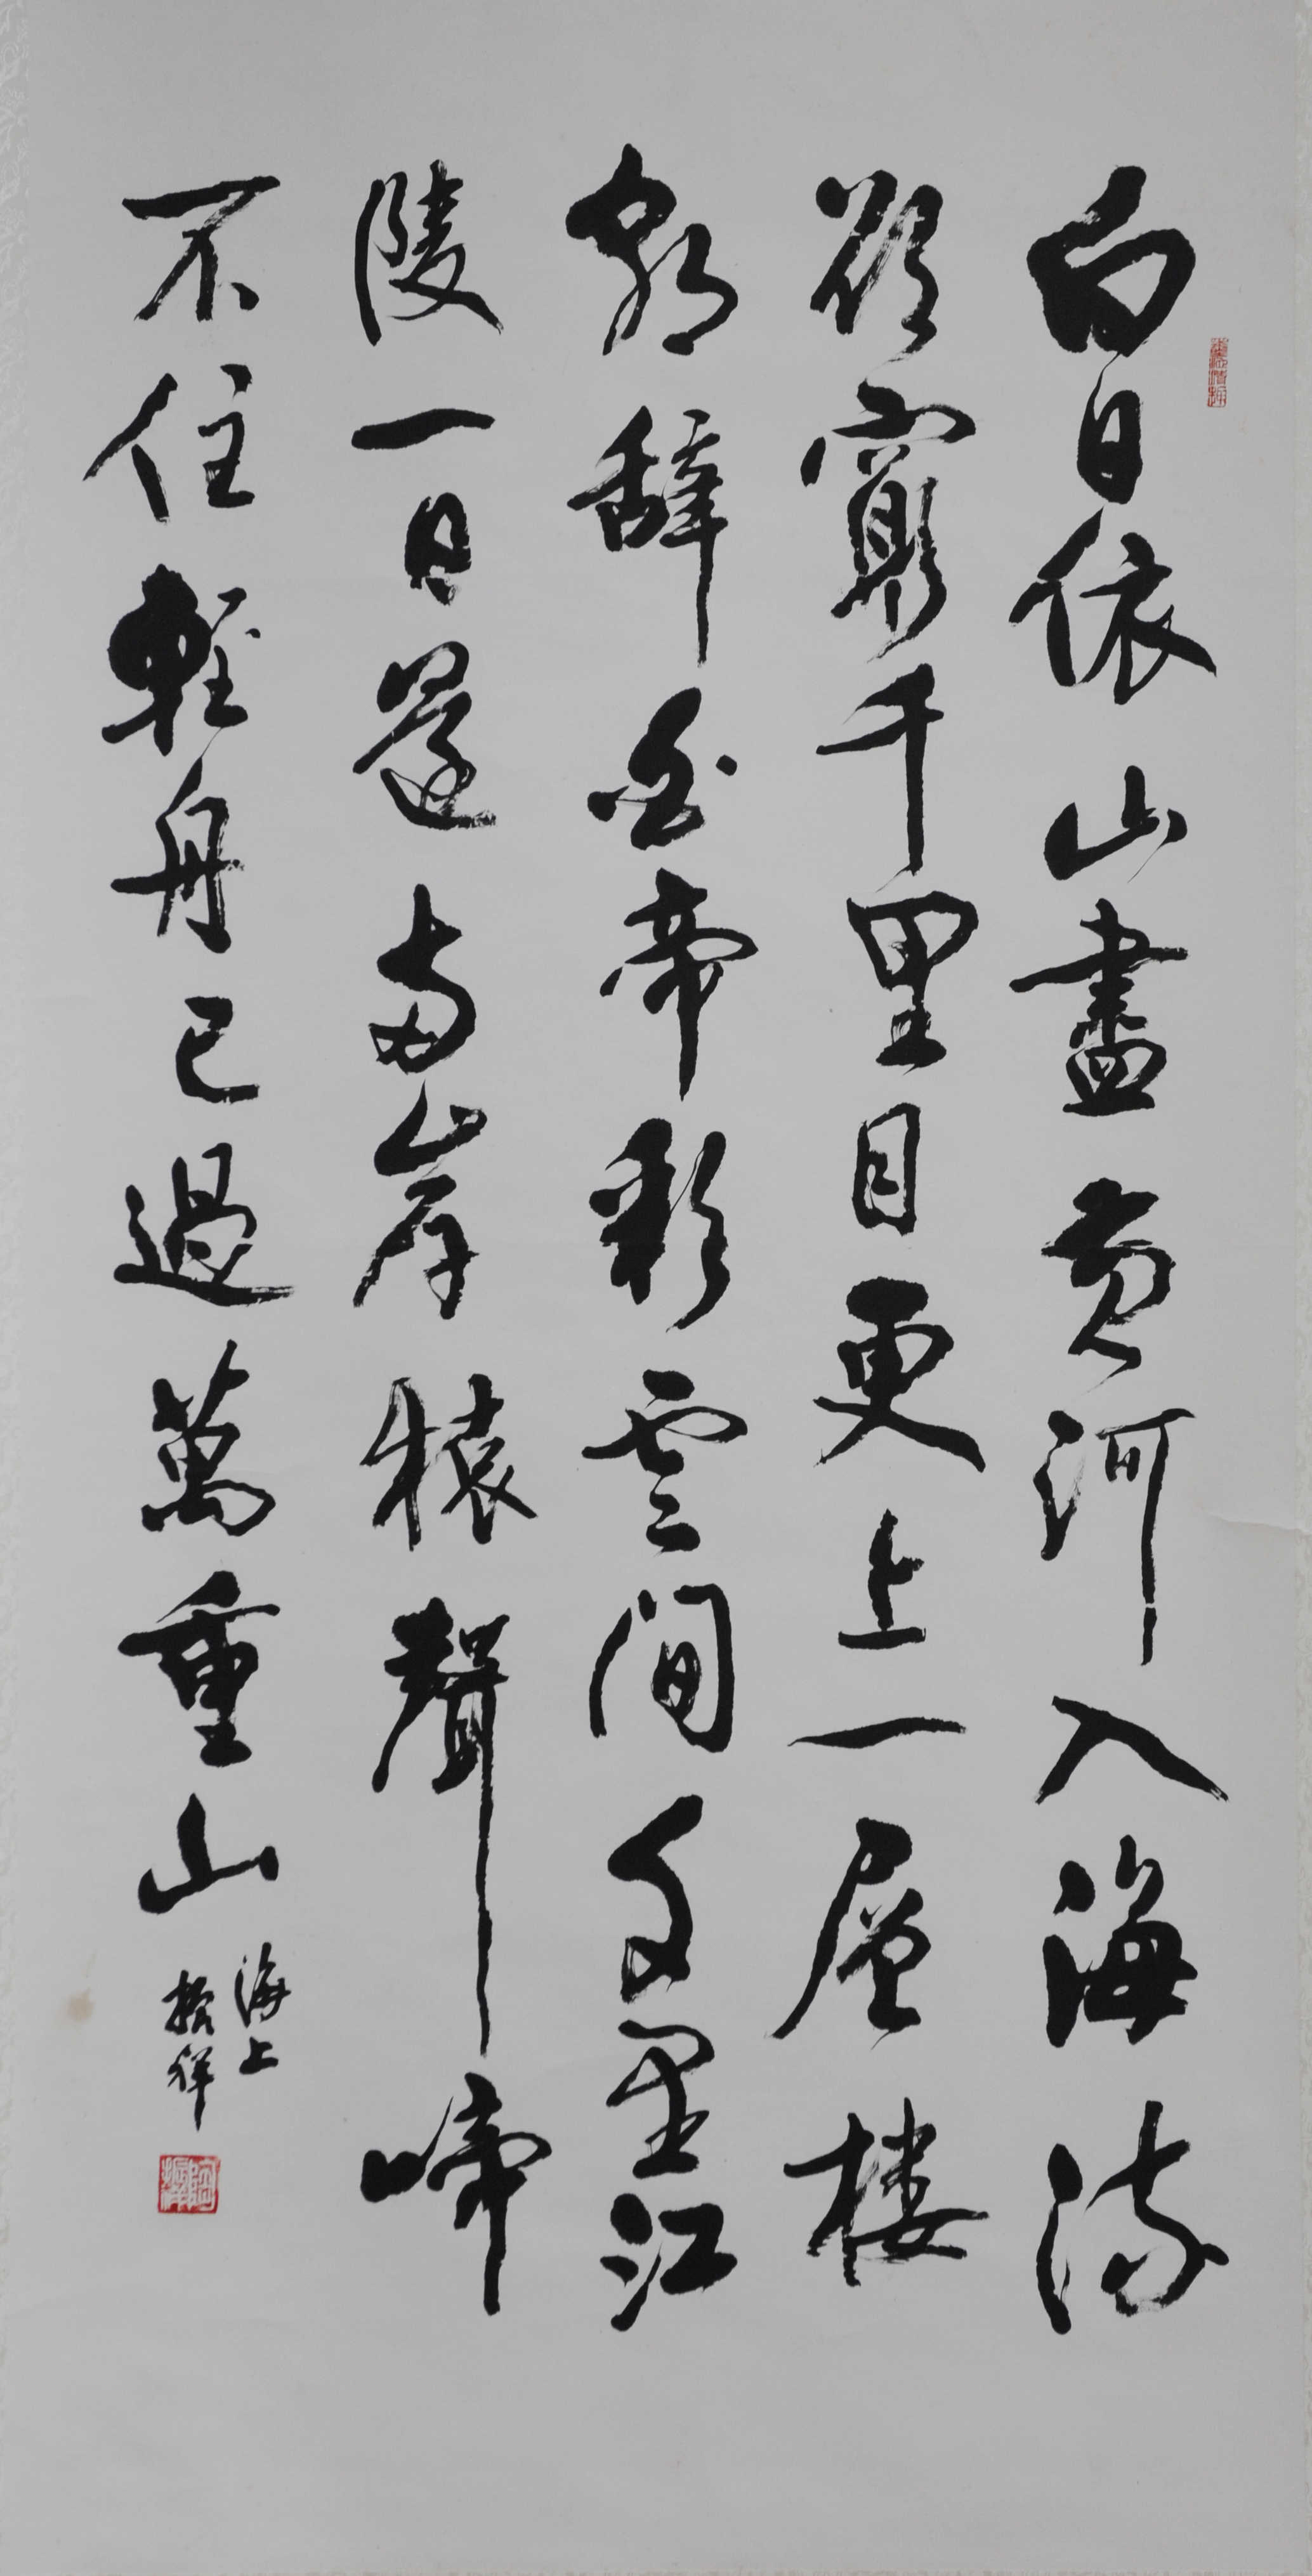 白日依山盡黄河入海流
欲窮千里目更上一層樓
朝辭白帝彩雲間千里江
陵一日還兩岸猿聲啼
不住輕舟已過萬重山
海上
振祥